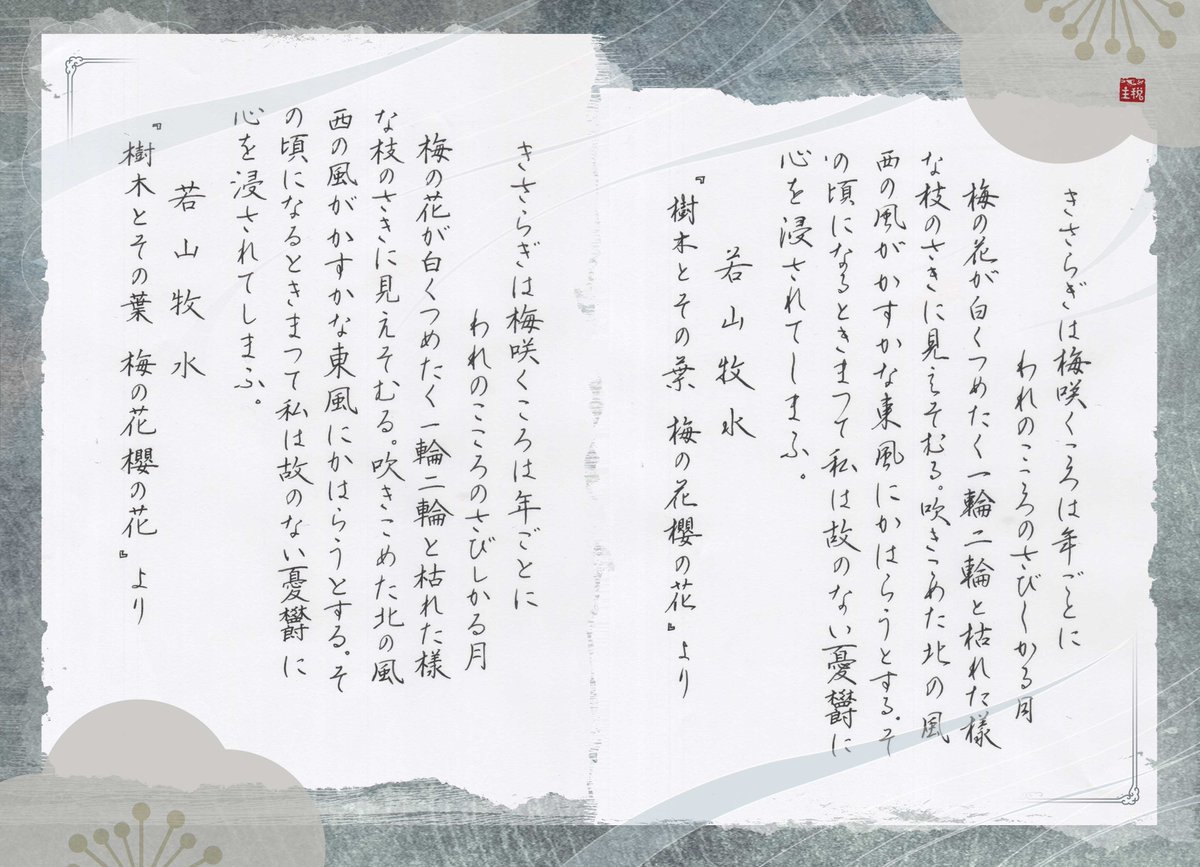 きさらぎは梅咲くころは年ごとに
われのこころのさびしかる月
梅の花が白くつめたく一輪二輪と枯れた様
な枝のさきに見えそむる。吹きこめた北の風
西の風がかすかな東風にかはらうとする。そ
の頃になるときまつて私は故のない憂欝に
心を浸されてしまふ。
若山牧水
『樹木とその葉 梅の花櫻の花』より
きさらぎは梅咲くころは年ごとに
われのこころのさびしかる月
梅の花が白くつめたく一輪二輪と枯れた様
な枝のさきに見えそむる。吹きこめた北の風
西の風がかすかな東風にかはらうとする。そ
の頃になるときまつて私は故のない憂欝に
心を浸されてしまふ。
若山牧水
『樹木とその葉 梅の花櫻の花』より
主税